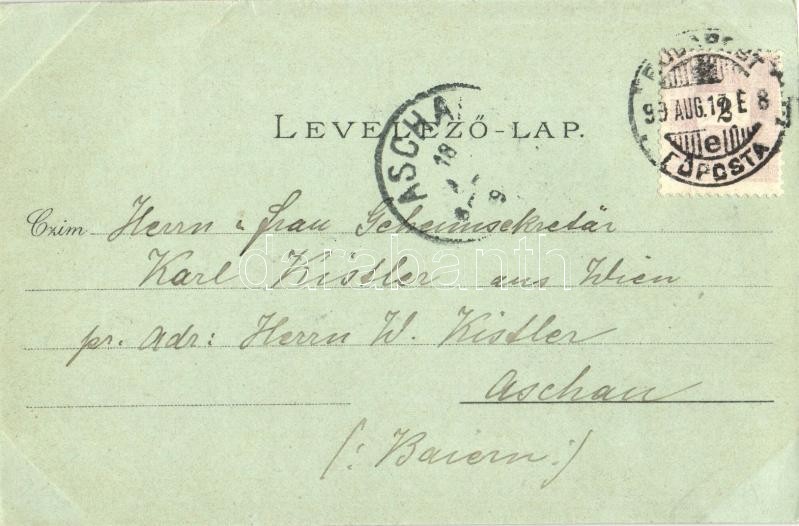 BUDAPEST
99 AUG. 17 E 8
2
e
FŐPOSTA
LEVELEZŐ-LAP.
ASCHA
18
9
Czim Herrn u frau Geheimsekretär
Karl Kistler aus Wien
darabanth
pr. Adr: Herrn W. Kistler
Aschau
(: Baiern :)